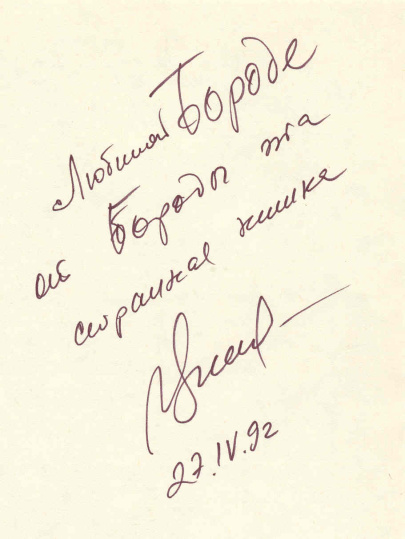 Любимой Бороде
от Бороды эта
странная книжка
27.IV.92